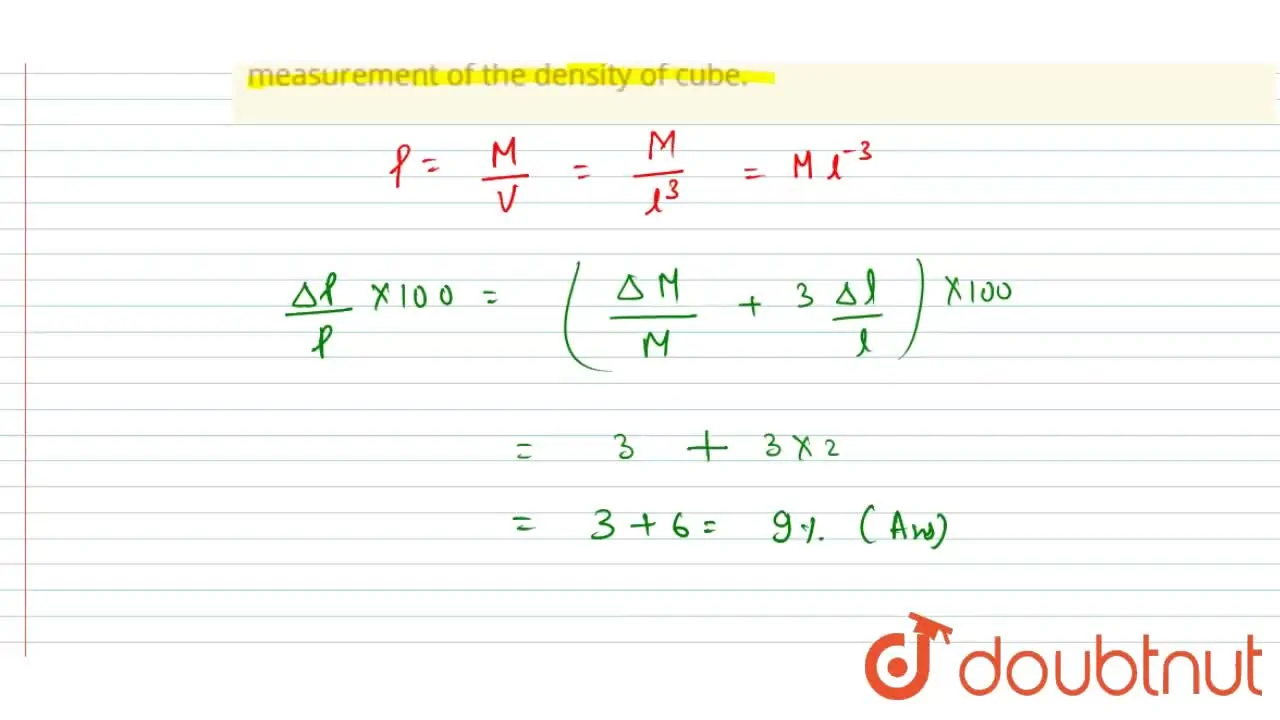 measurement of the density of cube.
ρ = M/V = M/l³ = M l⁻³
Δρ/ρ × 100 = (ΔM/M + 3 Δl/l) × 100
= 3 + 3 × 2
= 3 + 6 = 9 %. (Ans)
doubtnut